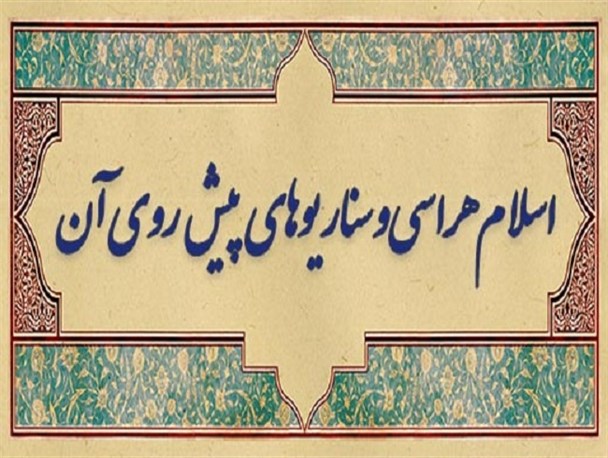 اسلام هراسی و سناریوهای پیش روی آن